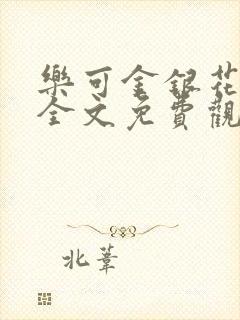 樂可金銀花
全文免費觀
北葦